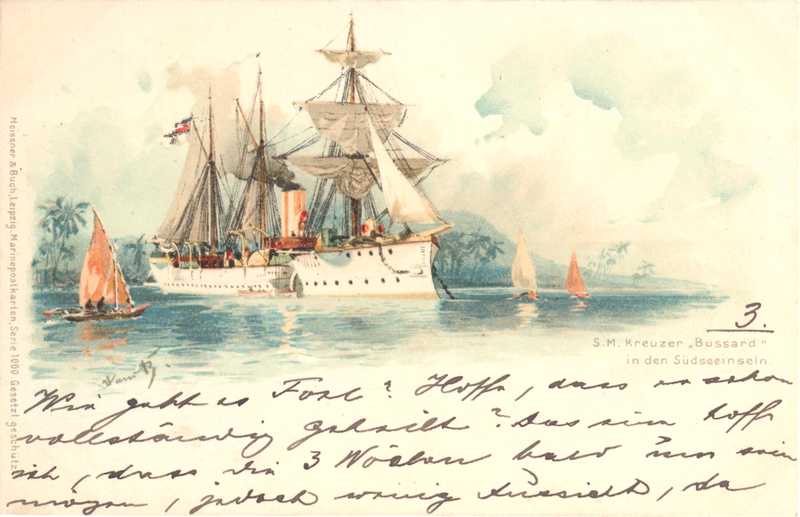 Meissner & Buch, Leipzig. Marinepostkarten. Serie 1009 Gesetzl geschützt
3.
S. M. Kreuzer „Bussard"
in den Südseeinseln
Wie geht es ? Hoffe, dass er schon
vollständig geheilt? Das eine hoffe
ich, dass die 3 Wochen bald um sein
mögen, jedoch wenig Aussicht, da